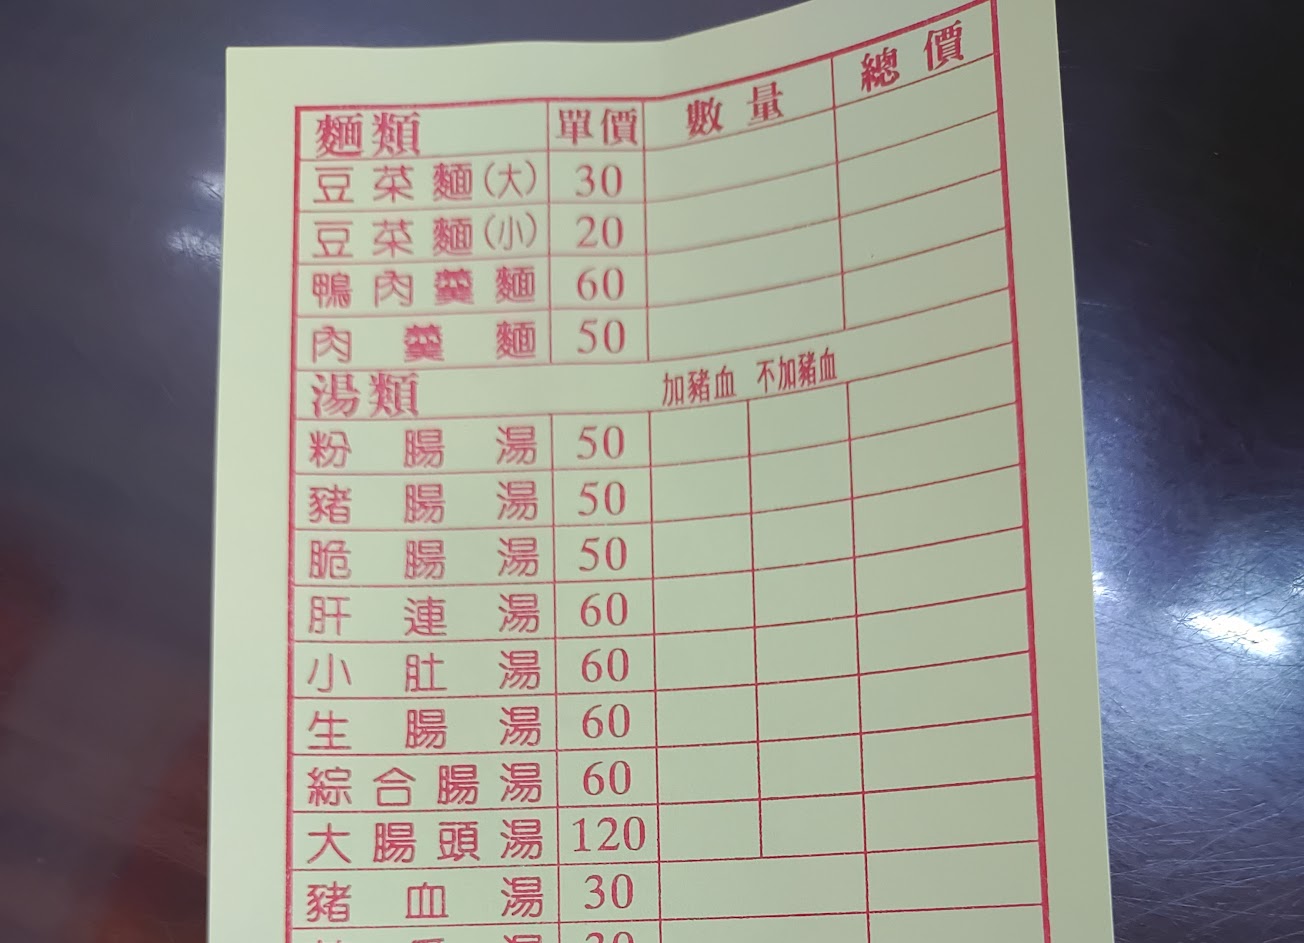 麵類 單價 數量 總價
豆菜麵(大) 30
豆菜麵(小) 20
鴨肉羹麵 60
肉羹麵 50
湯類 加豬血 不加豬血
粉腸湯 50
豬腸湯 50
脆腸湯 50
肝連湯 60
小肚湯 60
生腸湯 60
綜合腸湯 60
大腸頭湯 120
豬血湯 30
湯 30